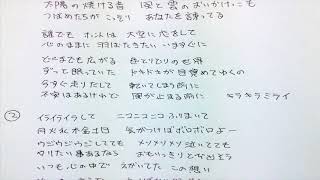 太陽の焼ける音 風と雲のおいかけっこも
つばめたちが こっそり あなたを誘ってる
誰でも ホントは 大空に 恋をして
心のままに 羽ばたきたい いますぐに
どこまでも広がる 色とりどりの世界
ずっと眠っていた ドキドキが目覚めてゆくの
今すぐ走りだして 転いてしまう前に
不安はあるけれど 風が止まる前に キラキラミライ
②
イライライラして ニコニコニコ ふりまいて
月火水木金土日 気がつけばボロボロよー
ウジウジウジしてても メソメソメソ泣いてても
やりたい事あるなら おもいっきりとか出そう
いつも 心の中で えがいてた この想い